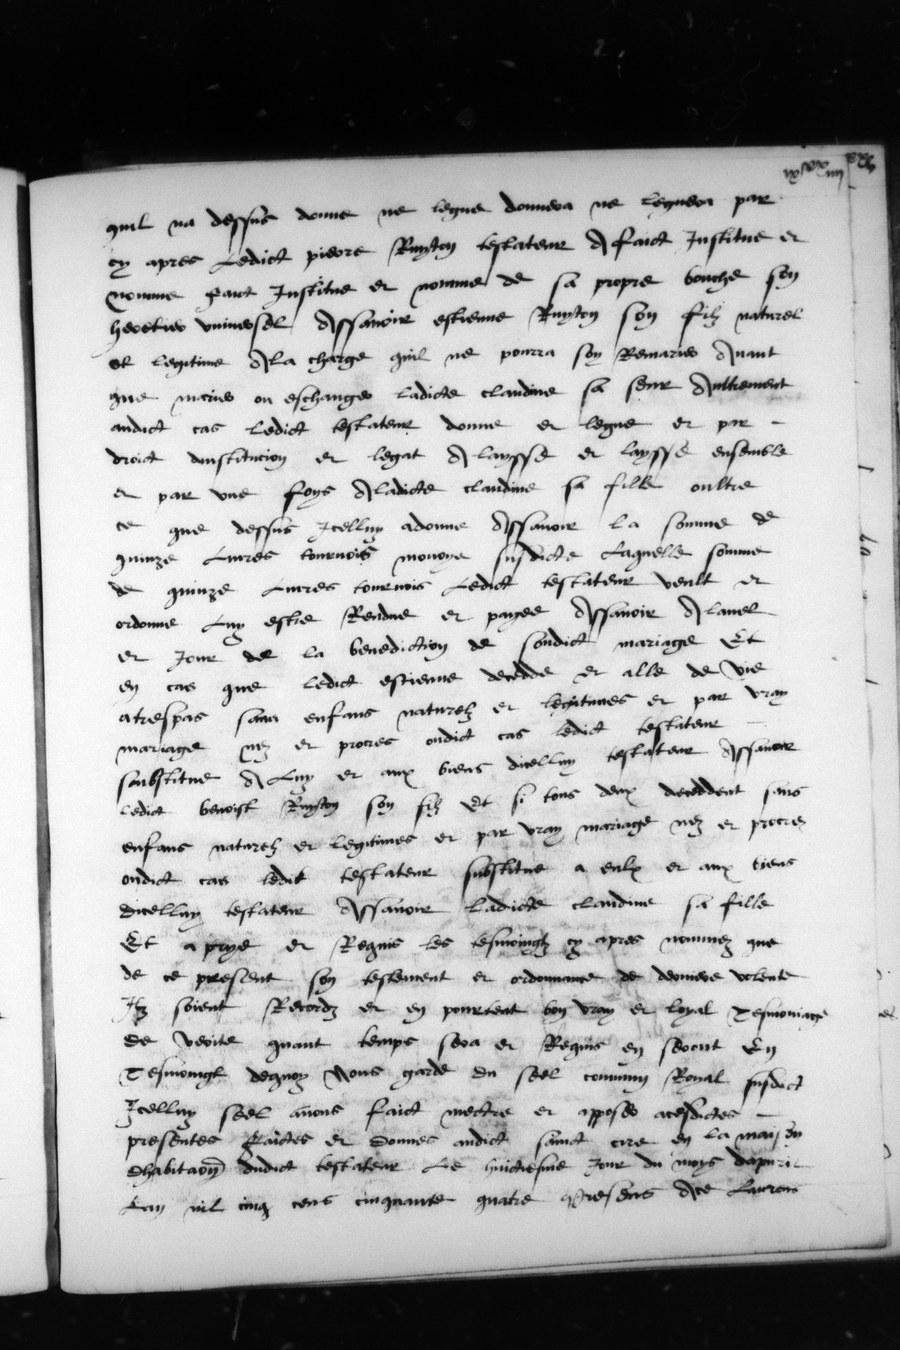 quil na dessus donne ne legue donnera ne leguera par
cy apres Ledict pierre Ruyton testateur A faict Institue et
nomme faict Institue et nomme de sa propre bouche son
heretier universel Assavoir estienne Ruyton son filz naturel
et legitime A la charge quil ne pourra soy Remarier Avant
que marier ou eschanger ladicte claudine sa seur Aultrement
audict cas ledict testateur donne et legue et par -
droict dinstitucion et legat A laysse et laysse ensemble
et par une foys A ladicte claudine sa fille oultre
ce que dessus Icelluy a donne Assavoir la somme de
quinze Livres tournois monoye susdicte Laquelle somme
de quinze Livres tournois Ledict testateur veult et
ordonne Luy estre Rendue et payee Assavoir A
et Jour de la benediction de sondict mariage Et
en cas que ledict estienne decedde et alle de vie
a trespas sans enfans naturelz et legitimes et par vray
mariage nez et procres oudict cas ledict testateur -
substitue A Luy et aux biens dicelluy testateur Assavoir
ledict benoist Ruyton son filz Et si tous deux deceddent sans
enfans naturelz et legitimes et par vray mariage nez et procrez
oudict cas ledict testateur substitue a eulx et aux biens
dicelluy testateur Assavoir ladicte claudine sa fille
Et a prye et Requis les tesmoingtz cy apres nommez que
de ce present son testement et ordonnance de derniere volente
Ilz soient Recordz et en pourteat bon vray et loyal Tesmoniage
de verite quant temps sera et Requis en seront En
Tesmoingt dequoy Nous garde du seel commun Royal susdict
Icelluy seel avons faict mectre et apposer a cesdictes -
presentes faictes et donnes audict sainct cire en la maison
dhabitaon dudict testateur Le huictiesme Jour du moys dapvril
Lan mil cinq cens cinquante quatre presens Ace Laurens